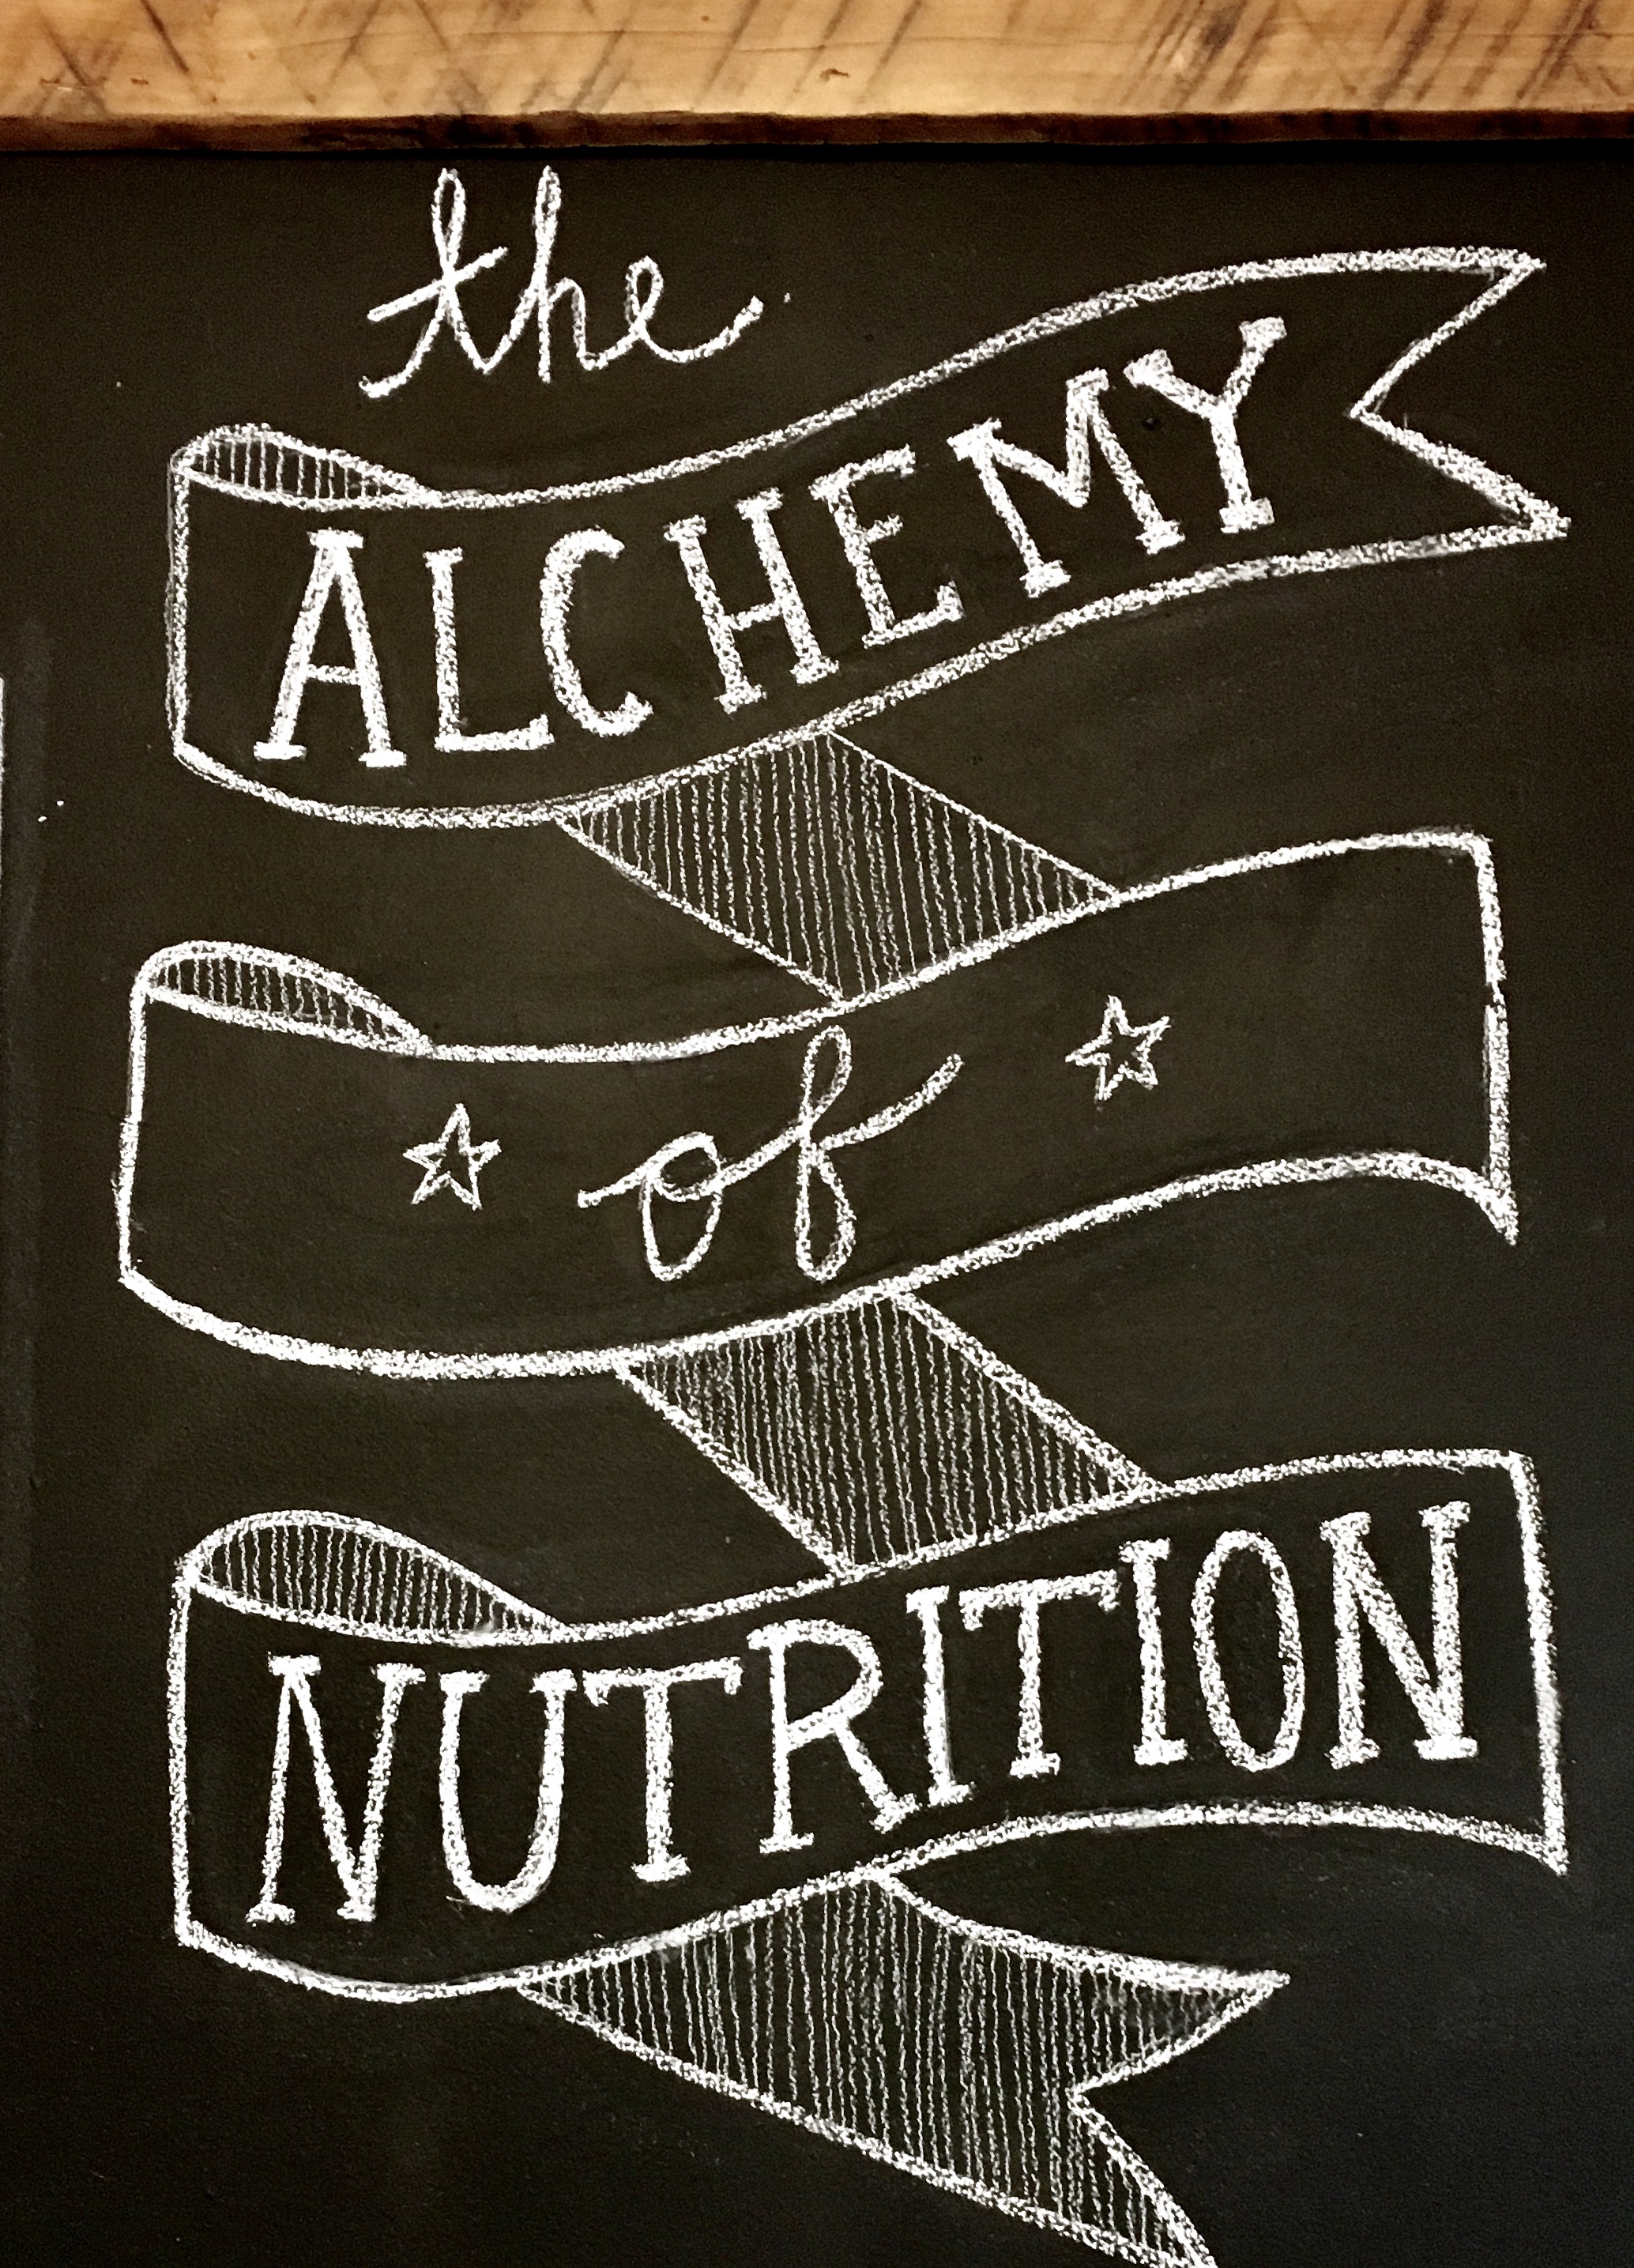 the
ALCHEMY
of
NUTRITION